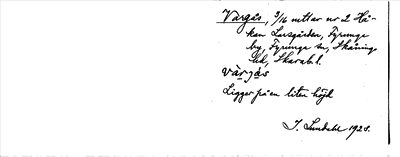 Vargås, 3/16 mtl av nr 2 Hå-
ken Larsgården, Fyrunga
by, Fyrunga sn, Skånings
hd, Skarab. l.
vàrgås
Ligger på en liten höjd
J. Lundahl 1928.